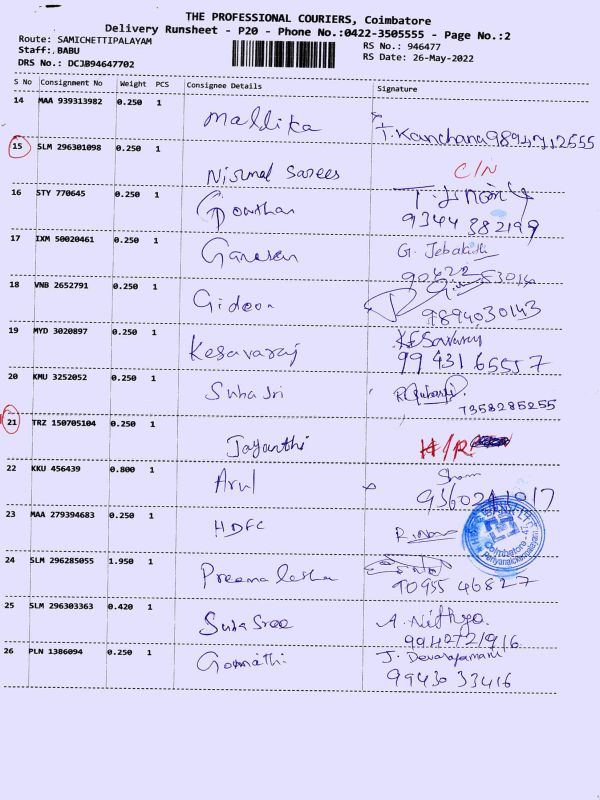 THE PROFESSIONAL COURIERS, Coimbatore
Delivery Runsheet - P20 - Phone No.:0422-3505555 - Page No.:2
Route: SAMICHETTIPALAYAM
RS No.: 946477
Staff: BABU
RS Date: 26-May-2022
DRS No.: DCJB94647702
S No Consignment No Weight PCS Consignee Details Signature
14 MAA 939313982 0.250 1 Mallika T. Kanchana
15 SLM 296301098 0.250 1 Nirmal Sarees C/N
16 STY 770645 0.250 1 Gowthan
9344382199
17 IXM 50020461 0.250 1 Ganesan G. Jebakisti
18 VNB 2652791 0.250 1 Gideon
9894030143
19 MYD 3020897 0.250 1 Kesavaraj KESavaraj
9943165557
20 KMU 3252052 0.250 1 Suba Sri
7358285255
21 TRZ 150705104 0.250 1 Jayanthi
22 KKU 456439 0.800 1 Arul Sham
9360241017
23 MAA 279394683 0.250 1 HDFC
Coimbatore
24 SLM 296285055 1.950 1 Preemalatha
9095546827
25 SLM 296303363 0.420 1 Suba Sree A. Nithya
9942721916
26 PLN 1386094 0.250 1 Gomathi J. Devarajamani
9943033416